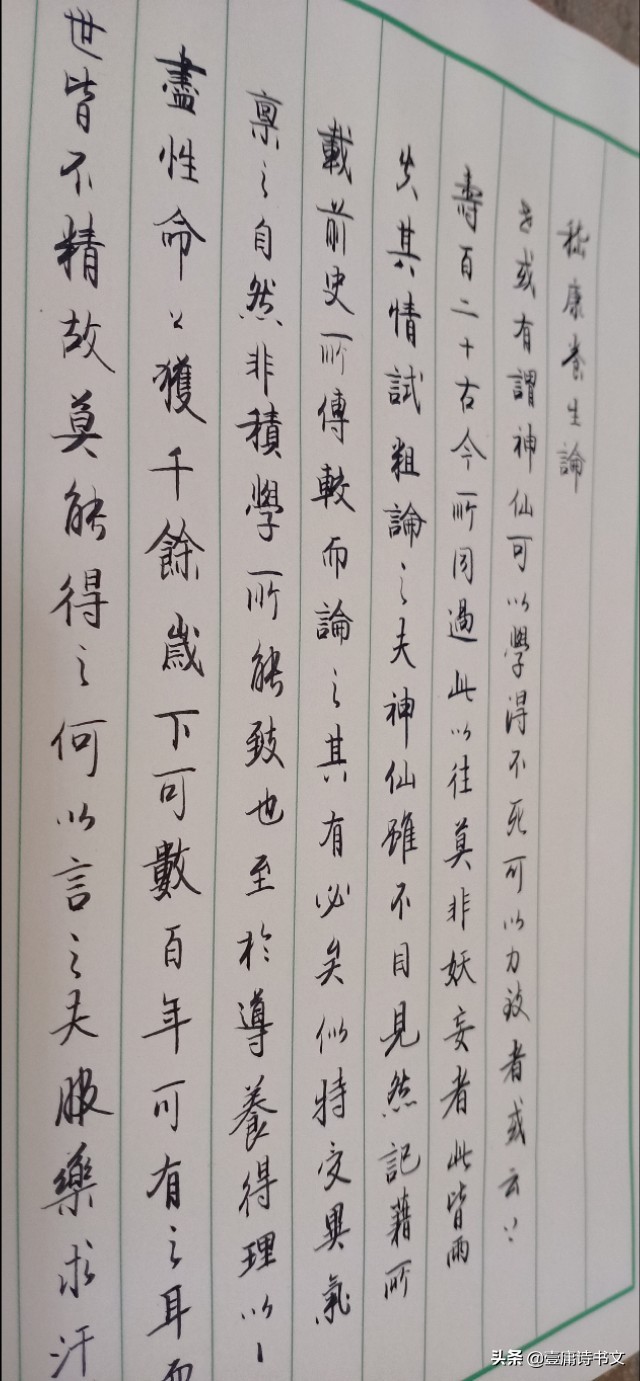 嵇康養生論
世或有謂神仙可以學得不死可以力致者或云上
壽百二十古今所同過此以往莫非妖妄者此皆兩
失其情試粗論之夫神仙雖不目見然記藉所
載前史所傳較而論之其有必矣似特受異氣
禀之自然非積學所能致也至於導養得理以
盡性命上獲千餘歲下可數百年可有之耳而
世皆不精故莫能得之何以言之夫服藥求汗
头条 @壹庸诗书文